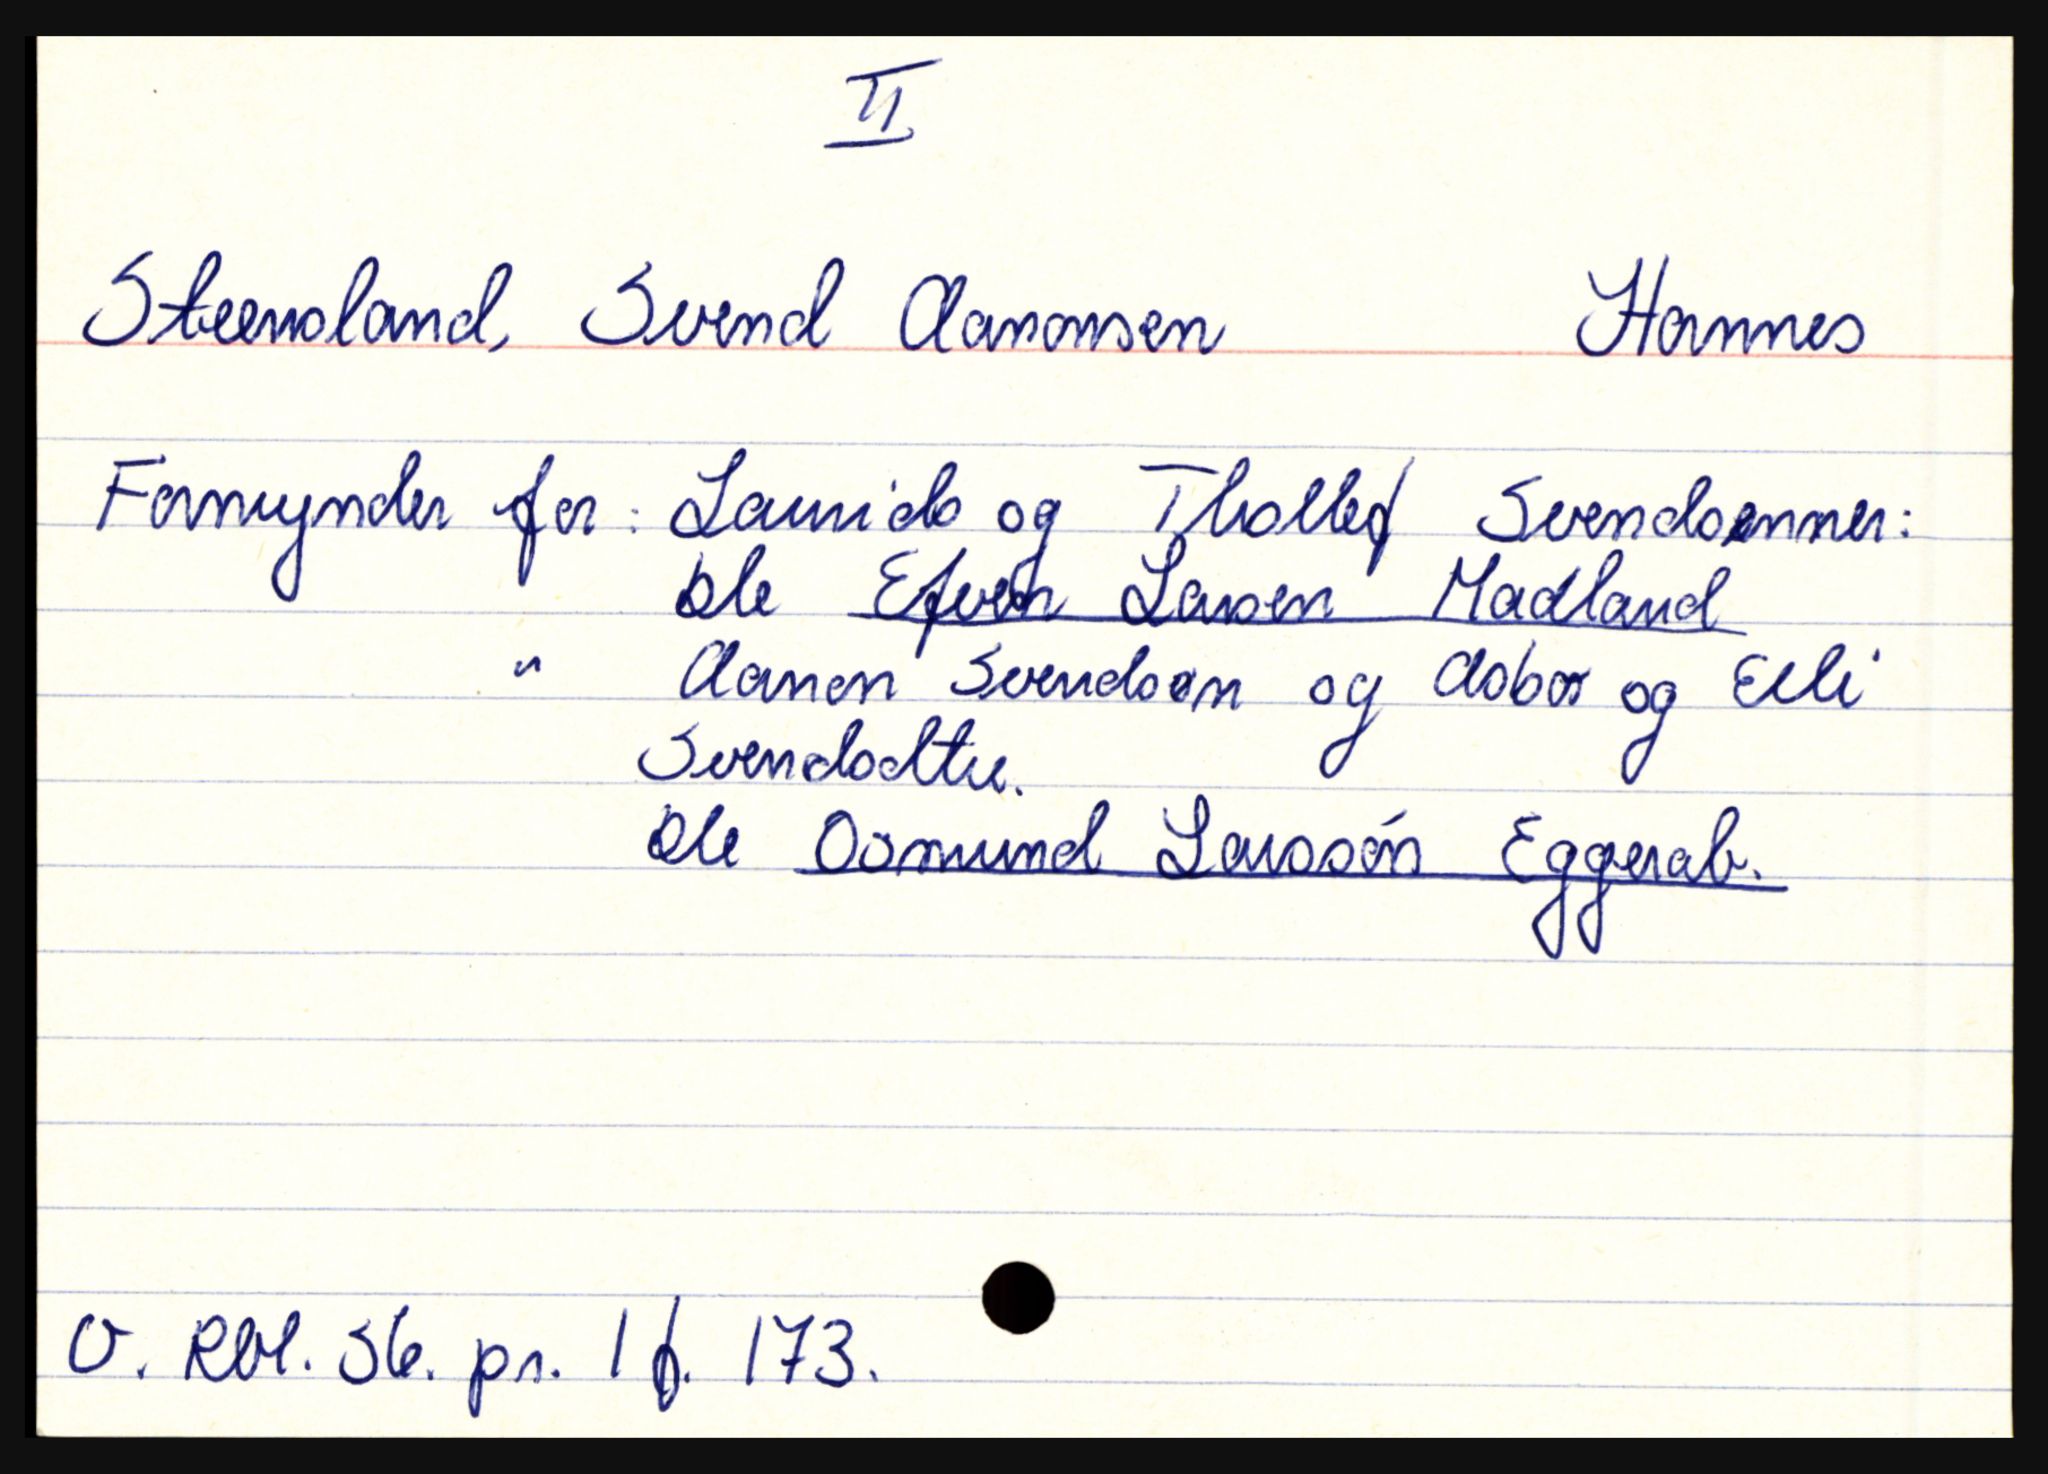 II
Steensland, Svend Aanonsen Hannes
Formynder for: Laurids og Thollef Svendsønner:
ble Efven Larsen Madland
" Aanon Svendsøn og Asbor og Elli
Svendsdtre.
ble Osmund Larssøn Eggerab.
V. Rbl. Sk. pr. 1 f. 173.